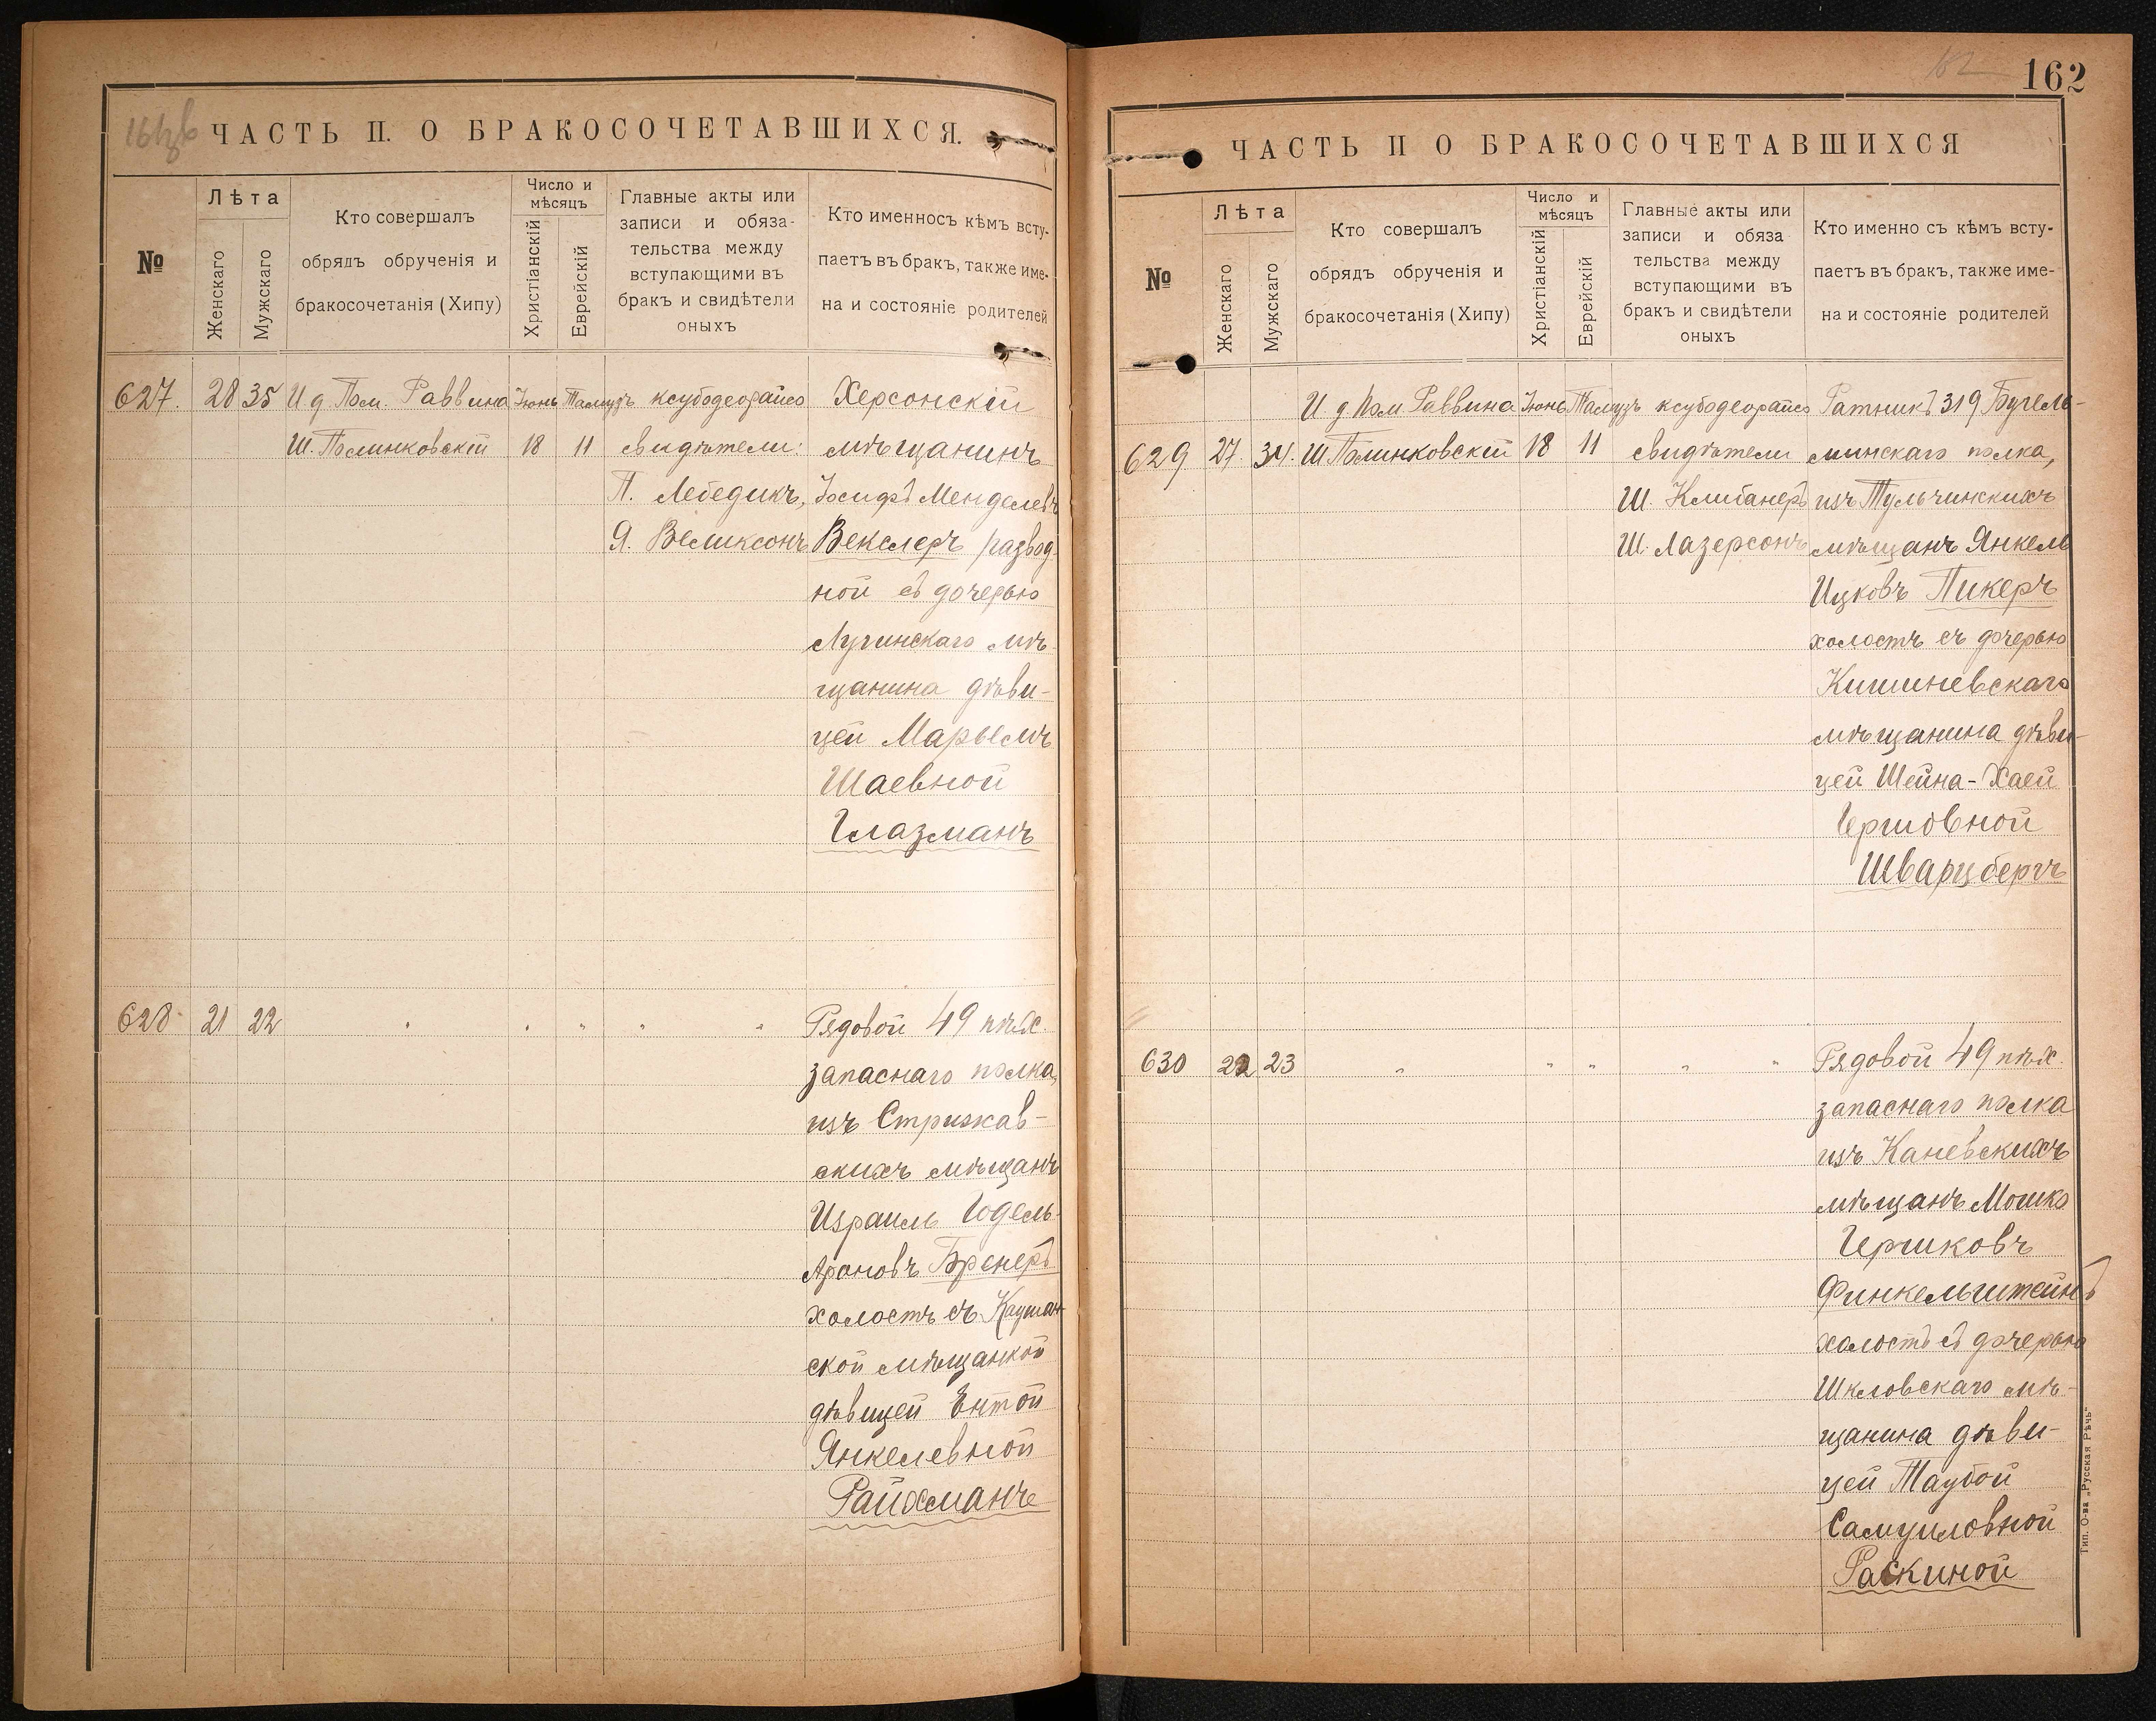 161об
ЧАСТЬ II. О БРАКОСОЧЕТАВШИХСЯ.
№
Лѣта
Женскаго
Мужскаго
Кто совершалъ
обрядъ обрученія и
бракосочетанія (Хипу)
Число и
мѣсяцъ
Христіанскій
Еврейскій
Главные акты или
записи и обяза-
тельства между
вступающими въ
бракъ и свидѣтели
оныхъ
Кто именносъ кѣмъ всту-
паетъ въ бракъ, также име-
на и состояніе родителей
627.
28
35
И д Пом. Раввина
Ш. Полинковскій
Іюнь
18
Тамузъ
11
ксубодеорайсо
свидѣтели:
П. Лебедикъ,
Я. Великсонъ
Херсонскій
мѣщанинъ
Іосифъ Менделевъ
Векслеръ развод-
ной съ дочерью
Лугинскаго мѣ-
щанина дѣви-
цей Марьемъ
Шаевной
Глазманъ
628
21
22
" " " " "
Рядовой 49 пѣх.
запаснаго полка,
изъ Стрижав-
скихъ мѣщанъ
Израиль Годель-
Ароновъ Бренеръ
холостъ съ Каушан-
ской мѣщанкой
дѣвицей Ентой
Янкелевной
Райхманъ
162
162
ЧАСТЬ II О БРАКОСОЧЕТАВШИХСЯ
№
Лѣта
Женскаго
Мужскаго
Кто совершалъ
обрядъ обрученія и
бракосочетанія (Хипу)
Число и
мѣсяцъ
Христіанскій
Еврейскій
Главные акты или
записи и обяза
тельства между
вступающими въ
бракъ и свидѣтели
оныхъ
Кто именно съ кѣмъ всту-
паетъ въ бракъ, также име-
на и состояніе родителей
629
27.
34.
И д Пом Раввина
Ш Полинковскій
Іюнь
18
Тамузъ
11
ксубодеорайсо
свидѣтели
Ш. Клибанеръ
Ш. Лазерсонъ
Ратникъ 319 Бугуль-
минскаго полка,
изъ Тульчинскихъ
мѣщанъ Янкель
Ицковъ Пикеръ
холостъ съ дочерью
Кишиневскаго
мѣщанина дѣви-
цей Шейна-Хаей
Гершовной
Шварцбергъ
630
22
23
" " " " "
Рядовой 49 пѣх.
запаснаго полка
изъ Каневскихъ
мѣщанъ Мошко
Гершковъ
Финкельштейнъ
холостъ съ дочерью
Шкловскаго мѣ-
щанина дѣви-
цей Таубой
Самуиловной
Раскиной
Тип. О-ва „Русская Рѣчь“